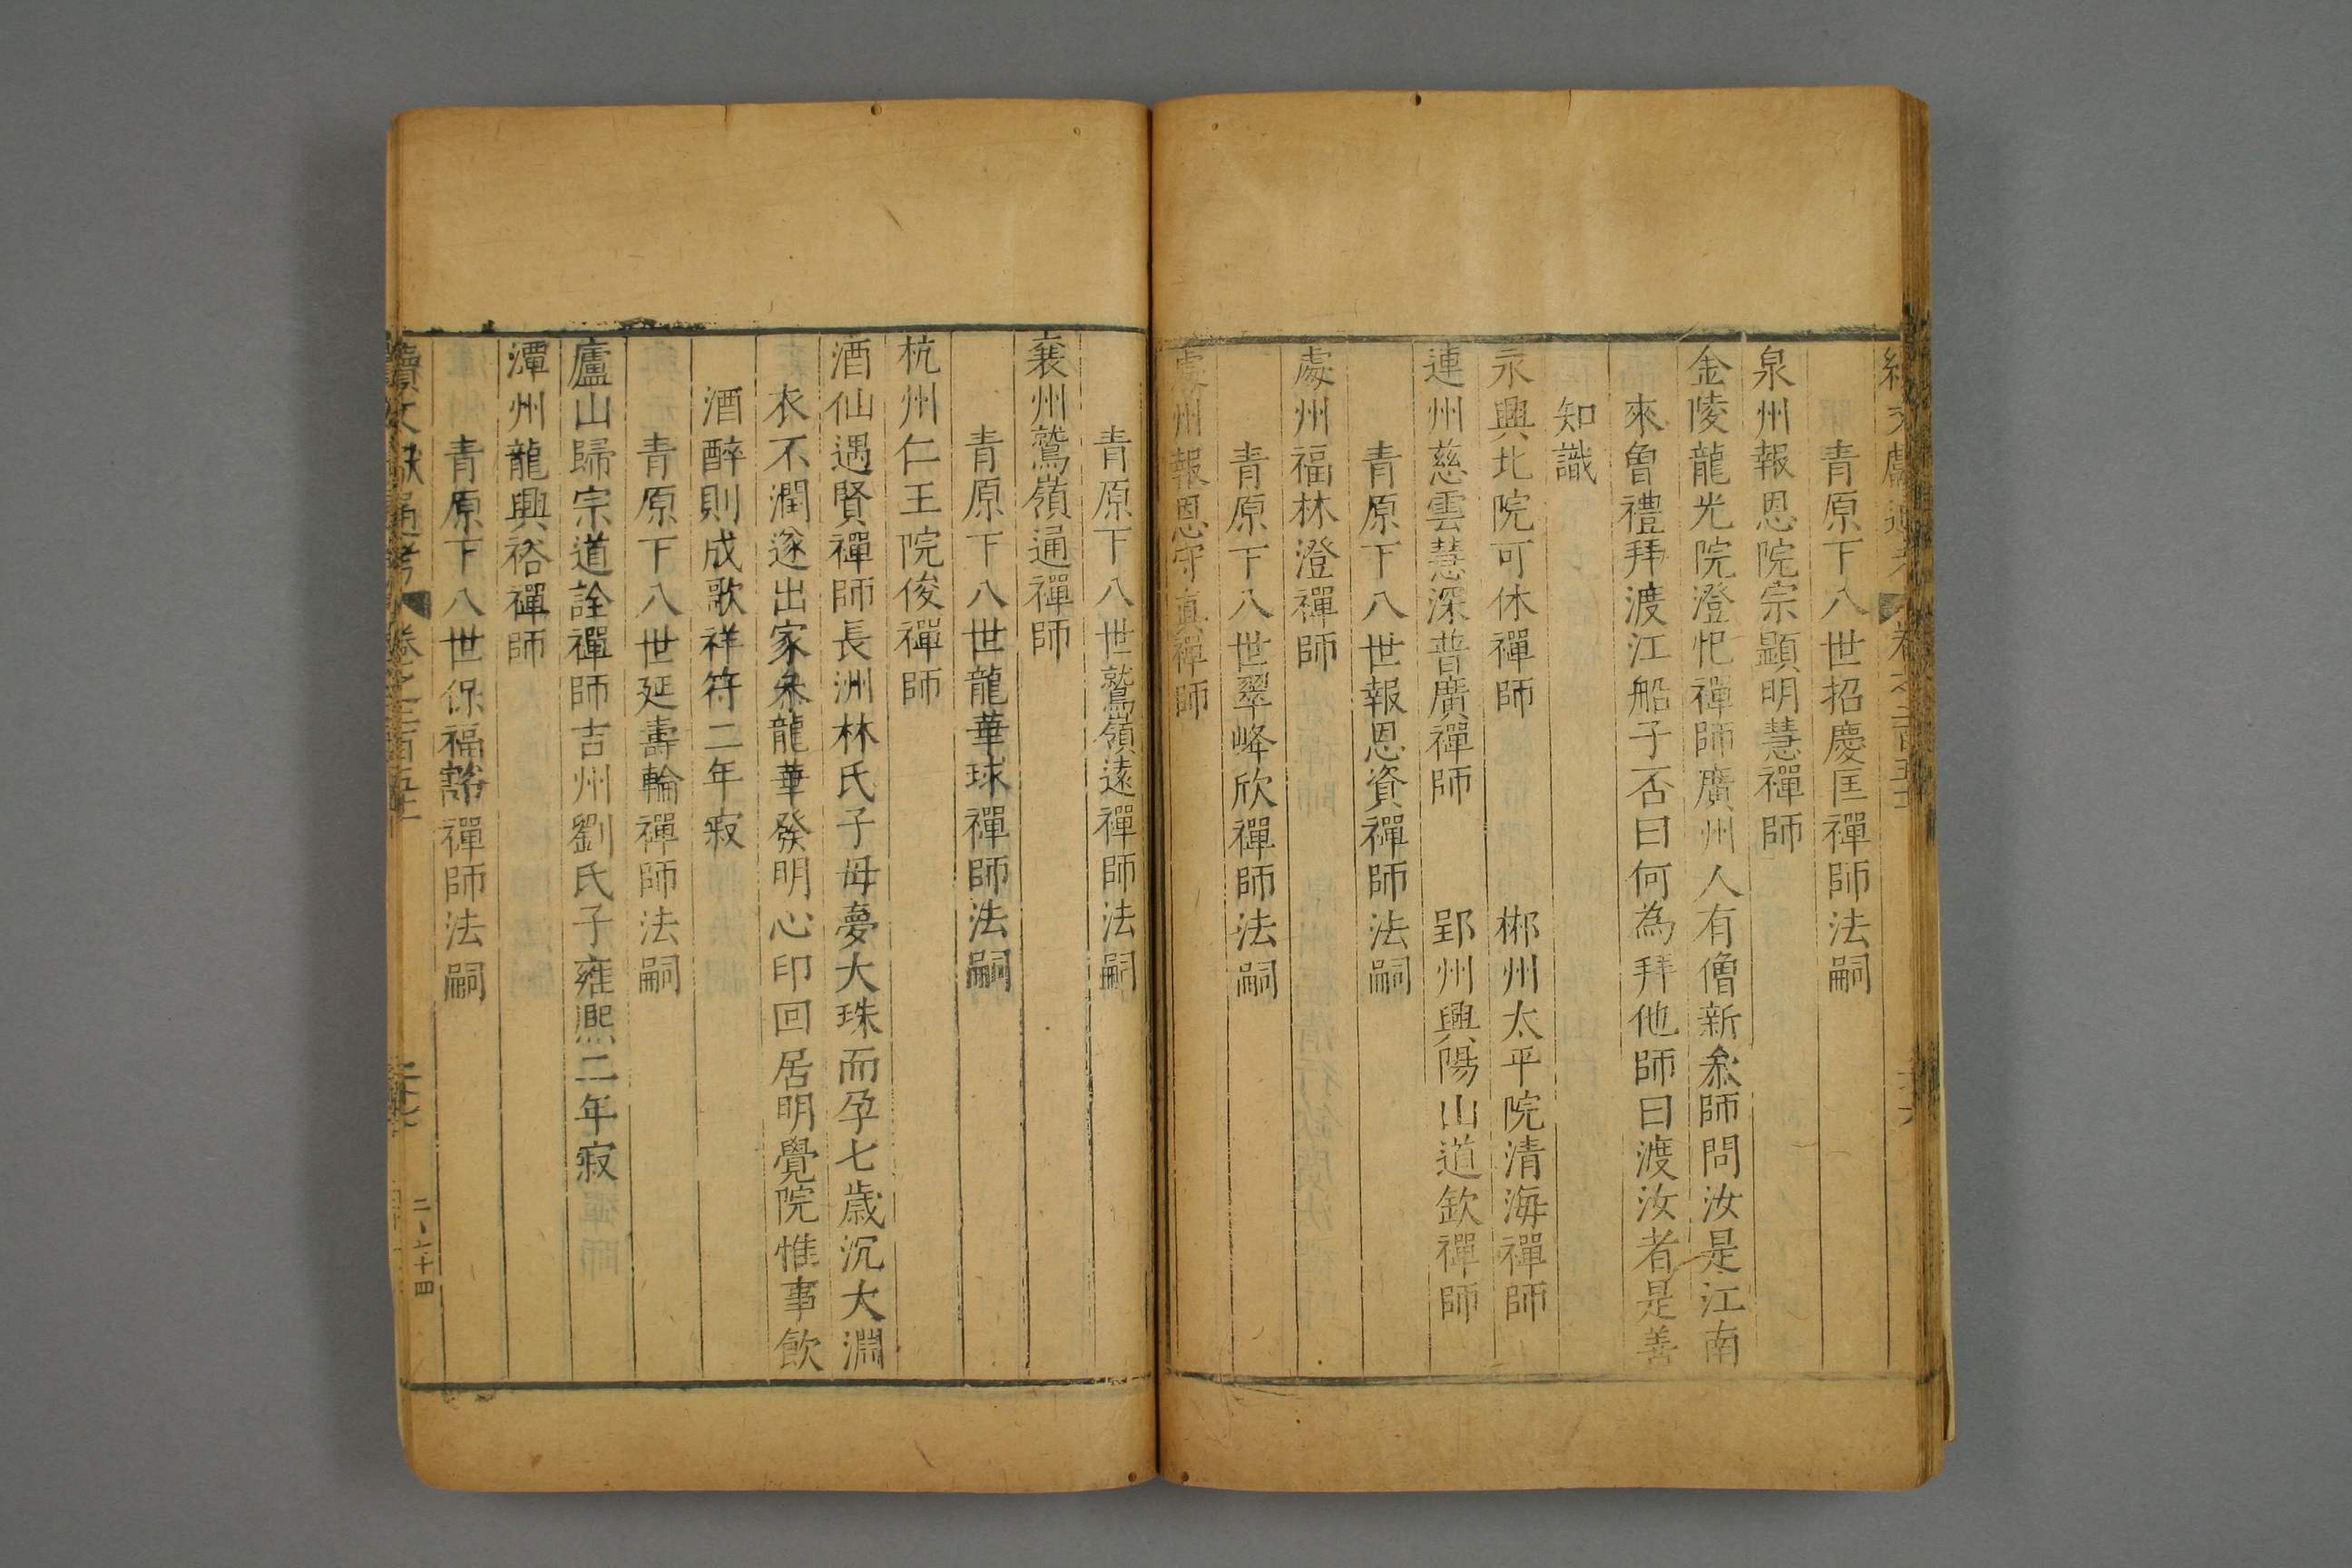 續文獻通考 卷之二百五十
青原下八世招慶匡禪師法嗣
泉州報恩院宗顯明慧禪師
金陵龍光院澄忋禪師廣州人有僧新叅師問汝是江南
來魯禮拜渡江船子否曰何為拜他師曰渡汝者是善
知識
永興北院可休禪師 郴州太平院清海禪師
連州慈雲慧深普廣禪師 郢州興陽山道欽禪師
青原下八世報恩資禪師法嗣
處州福林澄禪師
青原下八世翠峰欣禪師法嗣
處州報恩守真禪師
青原下八世鷲嶺遠禪師法嗣
襄州鷲嶺通禪師
青原下八世龍華球禪師法嗣
杭州仁王院俊禪師
酒仙遇賢禪師長洲林氏子母夢大珠而孕七歲沉大淵
衣不潤遂出家叅龍華發明心印回居明覺院惟事飲
酒醉則成歌祥符二年寂
青原下八世延壽輪禪師法嗣
廬山歸宗道詮禪師吉州劉氏子雍熙二年寂
潭州龍興裕禪師
青原下八世保福𧯆禪師法嗣
續文獻通考 卷之二百五十
二七
二、七十四